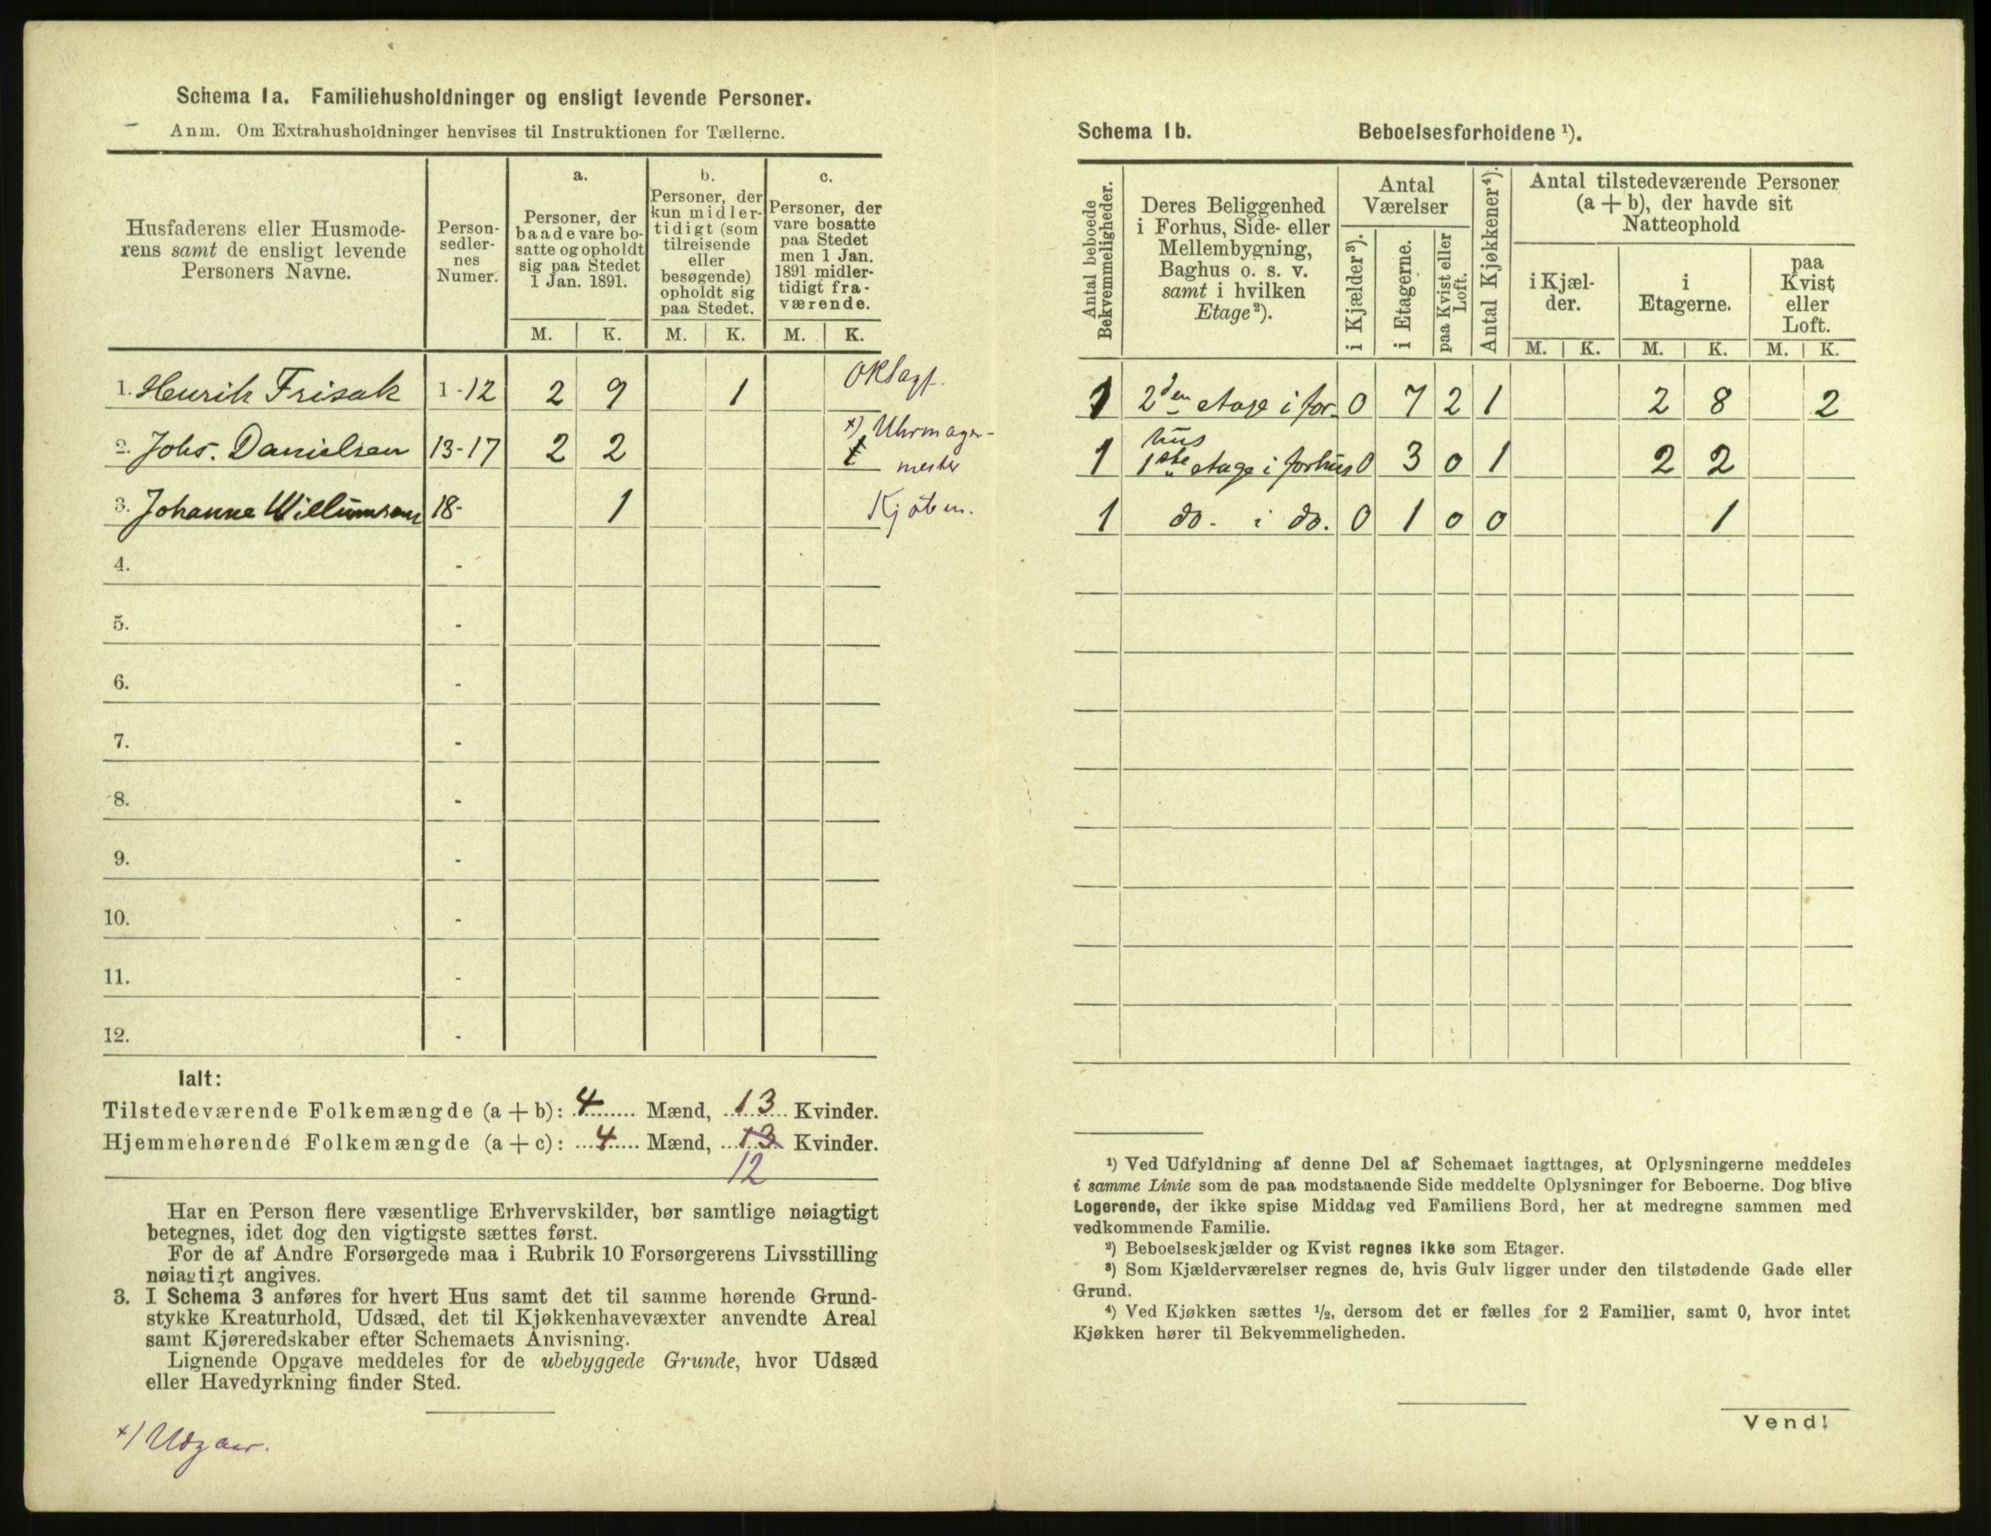 Schema 1a. Familiehusholdninger og ensligt levende Personer.
Anm. Om Extrahusholdninger henvises til Instruktionen for Tællerne.
Husfaderens eller Husmode-
rens samt de ensligt levende
Personers Navne.
Person-
sedler-
nes
Numer.
a.
Personer, der
baade vare bo-
satte og opholdt
sig paa Stedet
1 Jan. 1891.
b.
Personer, der
kun midler-
tidigt (som
tilreisende
eller
besøgende)
opholdt sig
paa Stedet.
c.
Personer, der
vare bosatte
paa Stedet
men 1 Jan.
1891 midler-
tidigt fra-
værende.
M. K. M. K. M. K.
1. Henrik Frisak 1-12 2 9 1 OKsagf.
2. Johs. Danielsen 13-17 2 2 x) Uhrmager-
mester
3. Johanne Willumsen 18- 1 Kjøbm.
4. -
5. -
6. -
7. -
8. -
9. -
10. -
11. -
12. -
Ialt:
Tilstedeværende Folkemængde (a + b): 4 Mænd, 13 Kvinder.
Hjemmehørende Folkemængde (a + c): 4 Mænd, 13 Kvinder.
12
Har en Person flere væsentlige Erhvervskilder, bør samtlige nøiagtigt
betegnes, idet dog den vigtigste sættes først.
For de af Andre Forsørgede maa i Rubrik 10 Forsørgerens Livsstilling
nøiagtigt angives.
3. I Schema 3 anføres for hvert Hus samt det til samme hørende Grund-
stykke Kreaturhold, Udsæd, det til Kjøkkenhavevæxter anvendte Areal
samt Kjøreredskaber efter Schemaets Anvisning.
Lignende Opgave meddeles for de ubebyggede Grunde, hvor Udsæd
eller Havedyrkning finder Sted.
x) Udgaar.
Schema 1b. Beboelsesforholdene ¹).
Antal beboede
Bekvemmeligheder.
Deres Beliggenhed
i Forhus, Side- eller
Mellembygning,
Baghus o. s. v.
samt i hvilken
Etage²).
Antal
Værelser
i Kjælder³).
i Etagerne.
paa Kvist eller
Loft.
Antal Kjøkkener⁴).
Antal tilstedeværende Personer
(a + b), der havde sit
Natteophold
i Kjæl-
der.
i
Etagerne.
paa
Kvist
eller
Loft.
M. K. M. K. M. K.
1 2den etage i for- 0 7 2 1 2 8 2
hus
1 1ste etage i forhus 0 3 0 1 2 2
1 do. i do. 0 1 0 0 1
¹) Ved Udfyldning af denne Del af Schemaet iagttages, at Oplysningerne meddeles
i samme Linie som de paa modstaaende Side meddelte Oplysninger for Beboerne. Dog blive
Logerende, der ikke spise Middag ved Familiens Bord, her at medregne sammen med
vedkommende Familie.
²) Beboelseskjælder og Kvist regnes ikke som Etager.
³) Som Kjælderværelser regnes de, hvis Gulv ligger under den tilstødende Gade eller
Grund.
⁴) Ved Kjøkken sættes ½, dersom det er fælles for 2 Familier, samt 0, hvor intet
Kjøkken hører til Bekvemmeligheden.
Vend!